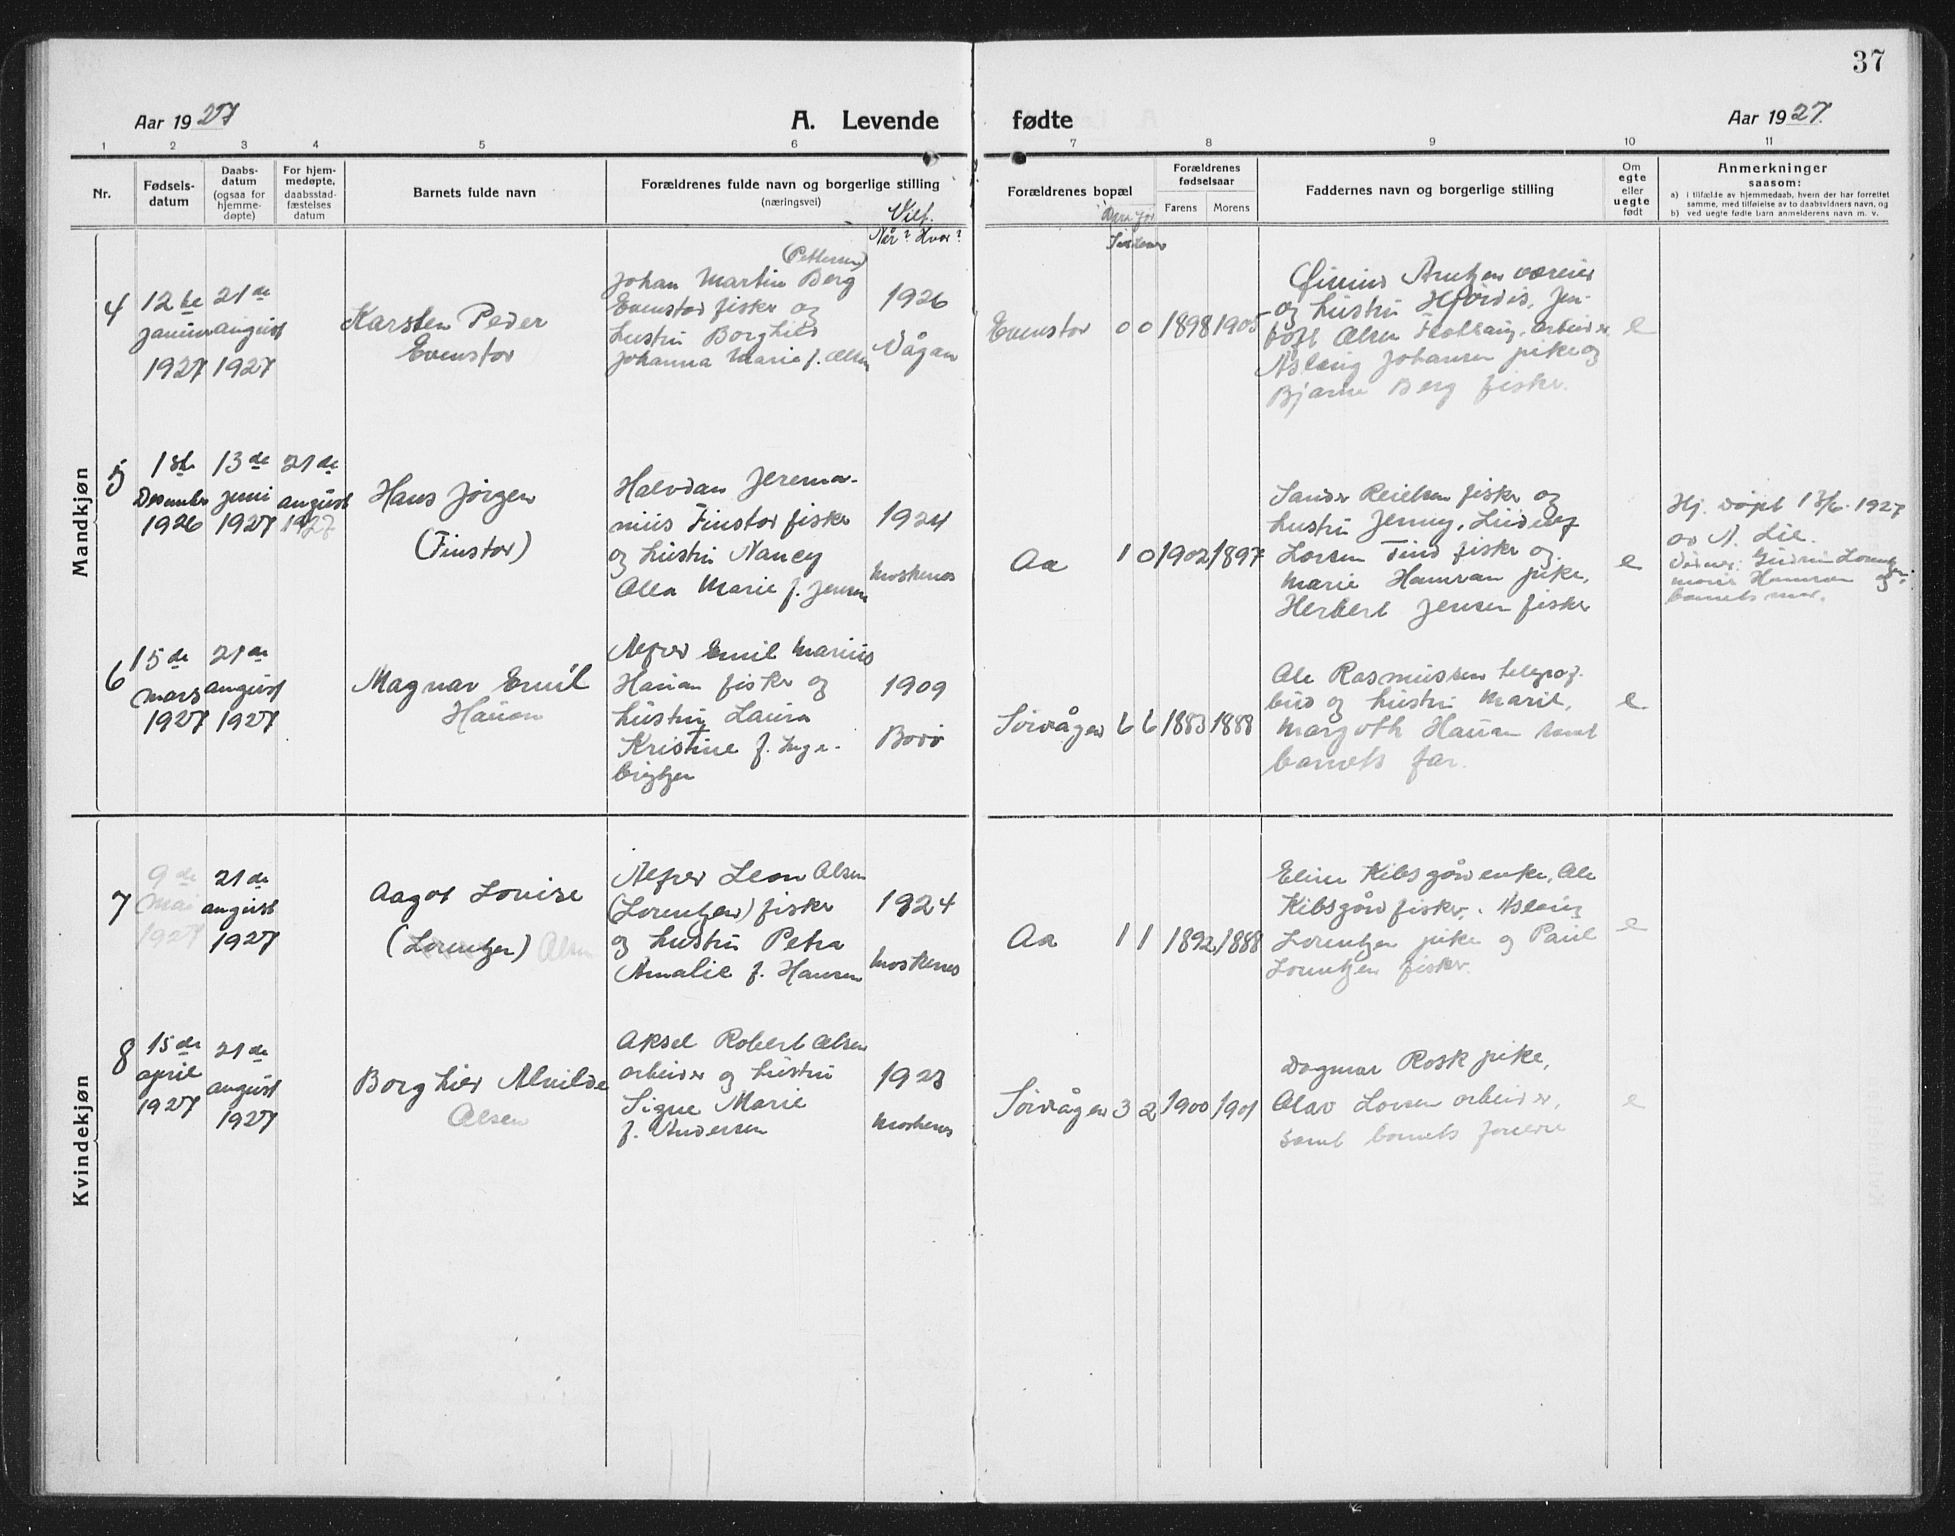 37
Aar 1927
A. Levende
fødte
Aar 1927.
1 2 3 4 5 6 7 8 9 10 11
Nr.
Fødsels-
datum
Daabs-
datum
(ogsaa for
hjemme-
døpte)
For hjem-
medøpte,
daabsstad-
fæstelses
datum
Barnets fulde navn
Forældrenes fulde navn og borgerlige stilling
(næringsvei)
Vilf.
Når? Hvor?
Forældrenes bopæl
Forældrenes
fødselsaar
Farens Morens
Faddernes navn og borgerlige stilling
Om
egte
eller
uegte
født
Anmerkninger
saasom:
a) i tilfælde av hjemmedaab, hvem der har forrettet
samme, med tilføielse av to daabsvidners navn, og
b) ved uegte fødte barn anmelderens navn m. v.
Mandkjøn
4
12te
januar
1927
21de
august
1927
Karsten Peder
Evenstad
(Pettersen)
Johan Martin Berg
Evenstad fisker og
hustru Borghild
Johanna Marie f. Olsen
1926
Vågan
Evenstad 0 0 1898 1905
Arntzen
og hustru Hjørdis, Jen-
toft Olsen arbeider
Aslaug Johansen pike og
Bjarne Berg fisker.
e
5
1ste
Desember
1926
13de
juni
1927
21de
august
1927
Hans Jørgen
(Finstad)
Halvdan Jerema-
nius Finstad fisker
og hustru Nancy
Olea Marie f. Jensen
1924
Moskenes
Aa 1 0 1902 1897
Sander Reielsen fisker og
hustru Jenny, Ludvig
Larsen Tind fisker og
Marie Hamran pike,
Herbert Jensen fisker
e
Hj. døpt 13/6 1927
av N. Lie.
Vidner: Gudrun Lorentzen,
Marie Hamran og
barnets mor.
6
15de
mars
1927
21de
august
1927
Magnar Emil
Hauan
Alfred Emil Marius
Hauan fisker og
hustru Laura
Kristine f. Inge-
brigtsen
1909
Sørvågen 6 6 1883 1888
Ole Rasmussen telegraf-
bud og hustru Marit,
Margoth Hauan samt
barnets far.
e
Kvindekjøn
7
9de
Mai
1927
21de
august
1927
Aagot Lovise
(Lorentzen) Olsen
Alfred Leon Olsen
(Lorentzen) fisker
og hustru Petra
Amalie f. Hansen
1924
Moskenes
Aa 1 1 1892 1888
Eline Kibsgård enke, Ole
Kibsgård fisker, Aslaug
Lorentzen pike og Paul
Lorentzen fisker.
e
8
15de
april
1927
21de
august
1927
Borghild Alvilde
Olsen
Aksel Robert Olsen
arbeider og hustru
Signe Marie
f. Andersen
1923
Moskenes
Sørvågen 3 2 1900 1901
Dagmar Rosk pike,
Olav Larsen arbeider,
samt barnets foreldre
e